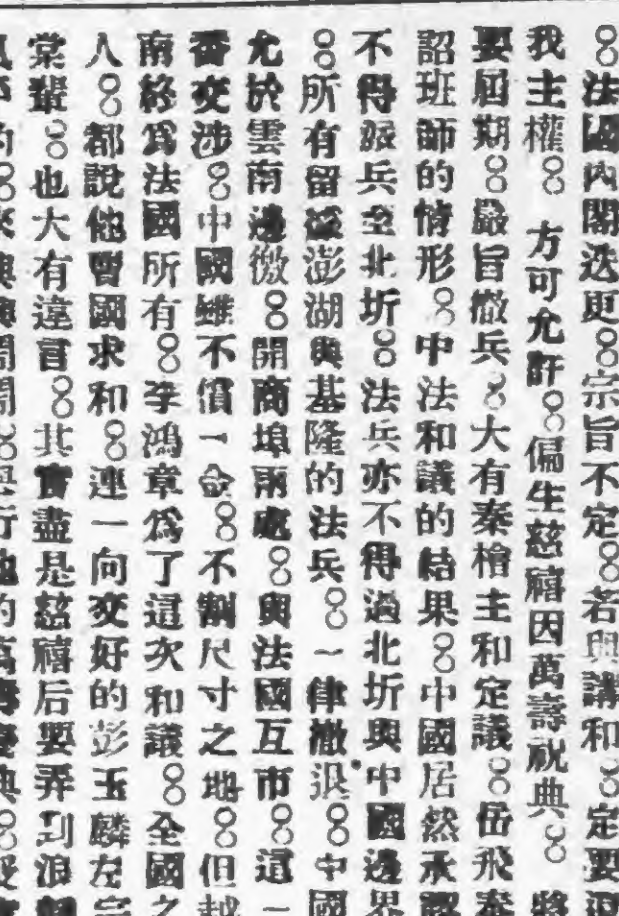 法國內閣迭更。宗旨不定。若與講和。定要
我主權。方可允許。偏生慈禧因萬壽祝典。將
要屆期。嚴旨撤兵。大有秦檜主和定議。岳飛奉
詔班師的情形。中法和議的結果。中國居然承認
不得派兵至北圻。法兵亦不得過北圻與中國邊界
。所有留澎湖與基隆的法兵。一律撤退。中國
允於雲南邊徼。開商埠兩處。與法國互市。這一
番交涉。中國雖不償一金。不割尺寸之地。但越
南終爲法國所有。李鴻章爲了這次和議。全國之
人。都說他賣國求和。連一向交好的彭玉麟左宗
棠輩。也大有違言。其實盡是慈禧后要弄到浪